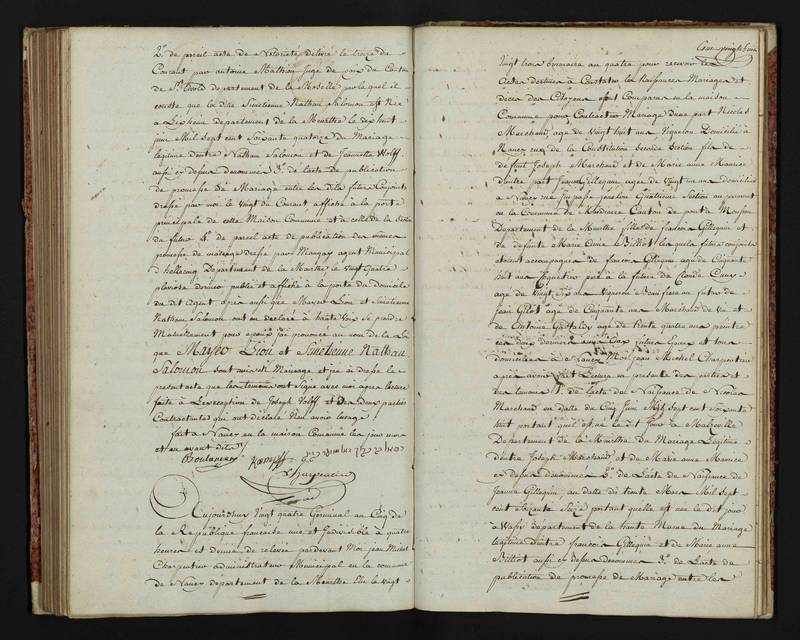 2.° de pareil acte de Notorieté délivré le treze du
Courant par antoine Mathieu Juge de paix du Canton
de St. Avold departement de la Moselle par le quel il
conste que la dite Sinetienne Nathan Salomon est Née
a Lixheim departement de la Meurthe le dix huit
juin Mil sept cent Soixante quatorze du Mariage
legitime d'entre Nathan Salomon et de Jeannette Wolff
aussi cy dessus denommés 3.° de l'acte de publication
de promesse de Mariage entre les dits futurs Conjoints
dressé par moi le vingt du Courant affiché à la porte
principale de cette Maison Commune et a celle de la Section
du futur 4.° de pareil acte de publication des mêmes
promesse de mariage dressé par agent Municipal
departement de la Meurthe le vingt quatre
pluviose dernier publié et affiché a la porte du Domicile
du dit agent après aussi que Mayer Lion et Sinetienne
Nathan Salomon ont eu declaré à haute voix se prendre
Mutuellement pour epoux j'ai prononcé au nom de la Loi
que Mayer Lion et Sinetienne Nathan
Salomon sont unis en Mariage et j'ai dressé le
présent acte que les temoins ont Signé avec moi après lecture
faite à L'exception de Joseph Wolff et des deux parties
Contractantes qui ont declaré n'en avoir l'usage
fait a Nancy en la maison Commune les jour mois
et an avant dits
Boulanger
Charpentier
Aujourdhuy Vingt quatre Germinal an Cinq de
la Republique francaise une et Indivisible à quatre
heures et demie de relevée pardevant Moi jean Michel
Charpentier administrateur Municipal en la commune
de Nancy departement de la Meurthe Elu le vingt
Vingt trois brumaire an quatre pour recevoir les
Actes destinés à Constater les Naissances Mariages et
decès des Citoyens sont Comparus en la maison
Commune pour Contracter Mariage d'une part Nicolas
Marchand, agé de Vingt huit ans Vigneron Domicilié à
Nancy rue de la Constitution Seconde Section fils de
defunt Joseph Marchand et de Marie anne Maurice
D'autre part Jeanne Gillequin agée de Vingt un ans domiciliée
à Nancy rue Quatrieme Section
en la Commune de Canton de pont a Mousson
Departement de la Meurthe fille de francois Gillequin et
de defunte Marie anne Billiot lesquels futurs conjoints
etoient accompagnés de francois Gillequin agé de Cinquante
huit ans père à la future de Claude Cuny
agé de Vingt Six ans Vigneron Beau frere au futur de
jean Pilot agé de Cinquante ans Marchand de vin et
de Antoine agé de trente quatre ans peintre
ces deux derniers
domiciliés à Nancy Moi jean Michel Charpentier
après avoir fait Lecture en presence des parties et
des temoins 1.° de l'acte de Naissance de Nicolas
Marchand en datte du Cinq Juin Mil Sept cent Soixante
huit portant qu'il est né le dit jour à Maizeville
Departement de la Meurthe du Mariage Légitime
d'entre Joseph Marchand et de Marie anne Maurice
cy dessus denommés 2.° de l'acte de Naissance de
Jeanne Gillequin en datte du trente Mars Mil Sept
cent Soixante Seize portant quelle est née le dit jour
à Wassy departement de la haute Marne du Mariage
legitime d'entre francois Gillequin et de Marie anne
Billiot aussi cy dessus denommés 3.° de l'acte de
publication de promesse de Mariage entre les